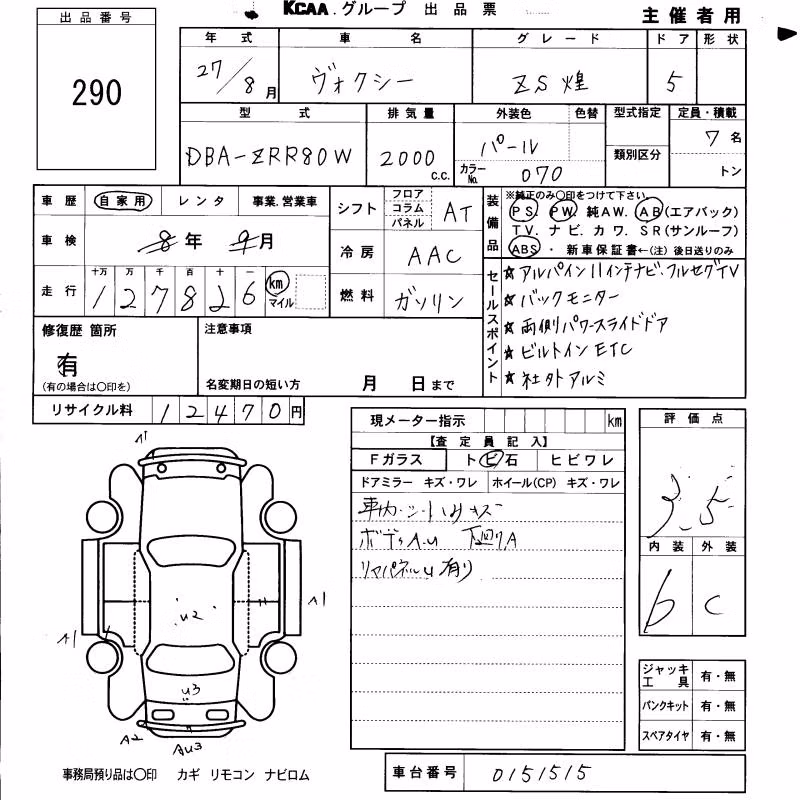 KCAA.グループ 出品票
主催者用
出品番号
290
年式 車名 グレード ドア 形状
27/8月 ヴォクシー ZS煌 5
型式 排気量 外装色 色替 型式指定 定員・積載
DBA-ZRR80W 2000c.c. パール 類別区分 7名
カラーNo. 070 トン
車歴 自家用 レンタ 事業.営業車
シフト フロア コラム パネル AT
車検 8年 9月
冷房 AAC
走行 十万 万 千 百 十 一
127826 km マイル
燃料 ガソリン
装備品 ※純正のみ○印をつけて下さい。
PS. PW. 純AW. AB(エアバック)
TV. ナビ. カワ. SR(サンルーフ)
ABS・新車保証書←(注)後日送りのみ
セールスポイント
☆アルパイン11インチナビ.フルセグTV
☆バックモニター
☆両側パワースライドドア
☆ビルトインETC
☆社外アルミ
修復歴 箇所
有
(有の場合は○印を)
注意事項
名変期日の短い方 月 日まで
リサイクル料 12470円
現メーター指示 km
【査定員記入】
Fガラス トビ石 ヒビワレ
ドアミラー キズ・ワレ ホイール(CP) キズ・ワレ
車内・シートハリキズ
ボディA.U 下廻りA
リヤパネルU有り
評価点
3.5
内装 外装
6 C
ジャッキ工具 有・無
パンクキット 有・無
スペアタイヤ 有・無
A1
A1
A1
U2
U3
A2
AU3
事務局預り品は○印 カギ リモコン ナビロム
車台番号 0151515